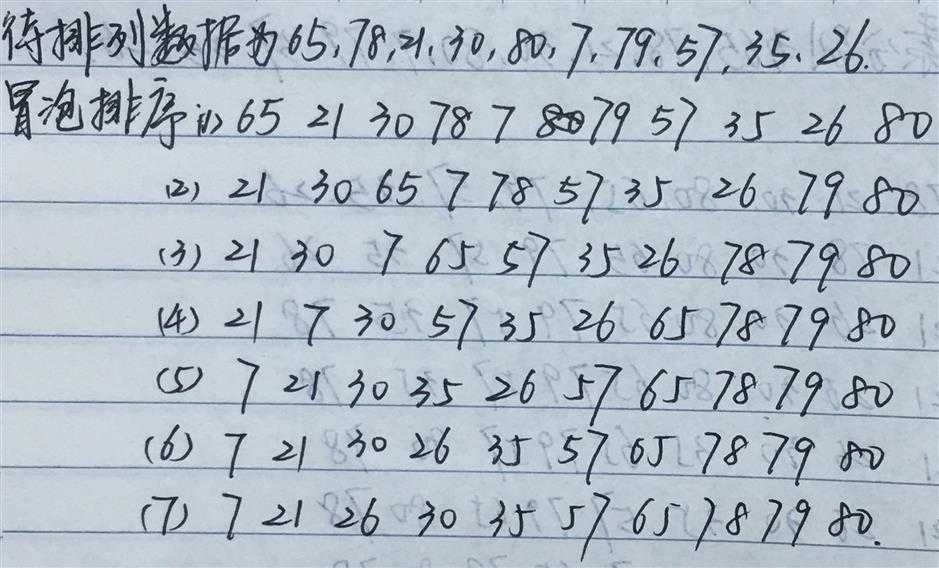 待排列数据为65,78,21,30,80,7,79,57,35,26.
冒泡排序(1) 65 21 30 78 7 79 57 35 26 80
(2) 21 30 65 7 78 57 35 26 79 80
(3) 21 30 7 65 57 35 26 78 79 80
(4) 21 7 30 57 35 26 65 78 79 80
(5) 7 21 30 35 26 57 65 78 79 80
(6) 7 21 30 26 35 57 65 78 79 80
(7) 7 21 26 30 35 57 65 78 79 80.